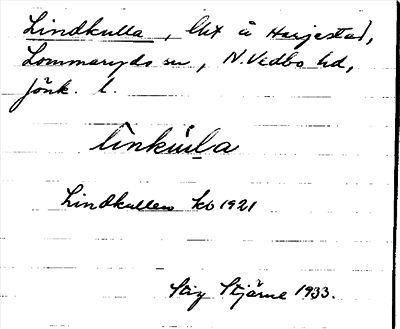 Lindkulla, lht å Harjestad,
Lommaryds sn, N. Vedbo hd,
Jönk. l.
linkulla
Lindkullen kb 1921
Stig Stjärne 1933.